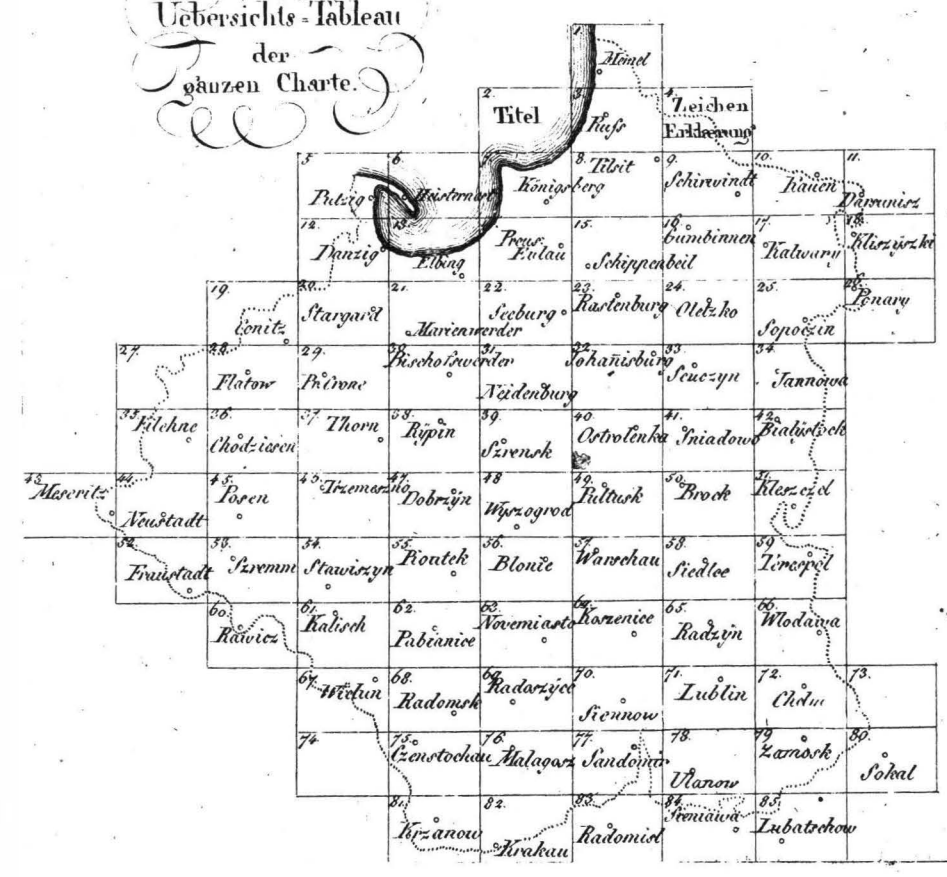 Uebersichts-Tableau
der
ganzen Charte.
1. Memel
2. Titel
3. Russ
4. Zeichen
Erklærung
5. Putzig
6. Heisternest
7. Königsberg
8. Tilsit
9. Schirwindt
10. Kauen
11. Darsunisz
12. Danzig
13. Elbing
Preus.
Eulau
15. Schippenbeil
16. Gumbinnen
17. Kalwary
18. Kliszyszki
19. Conitz
20. Stargard
21. Marienwerder
22. Seeburg
23. Rastenburg
24. Oletzko
25. Sopoczin
26. Ponary
27.
28. Flatow
29.
30. Bischofswerder
31. Neidenburg
32. Johanisburg
33. Scuczyn
34. Jannowa
35. Filehne
36. Chodziesen
37. Thorn
38. Rypin
39. Szrensk
40. Ostrolenka
41. Sniadowo
42. Bialystock
43. Meseritz
44. Neustadt
45. Posen
46. Trzemeszno
47. Dobrzÿn
48 Wyszogrod
49. Pultusk
50. Brock
51. Kleszczel
52. Fraustadt
53. Szremm
54. Stawiszyn
55. Piontek
56. Blonie
57. Warschau
58. Siedlce
59. Terespol
60. Rawicz
61. Kalisch
62. Pabianice
63. Novemiasto
64. Koszenice
65. Radzyn
66. Wlodawa
67. Wielun
68. Radomsk
69. Radoszyce
70. Siennow
71. Lublin
72. Chelm
73.
74.
75. Czenstochau
76. Malagosz
77. Sandomir
78. Ulanow
79. Zamosk
80. Sokal
81. Krzanow
82. Krakau
83. Radomisl
84. Sieniawa
85. Lubatschow